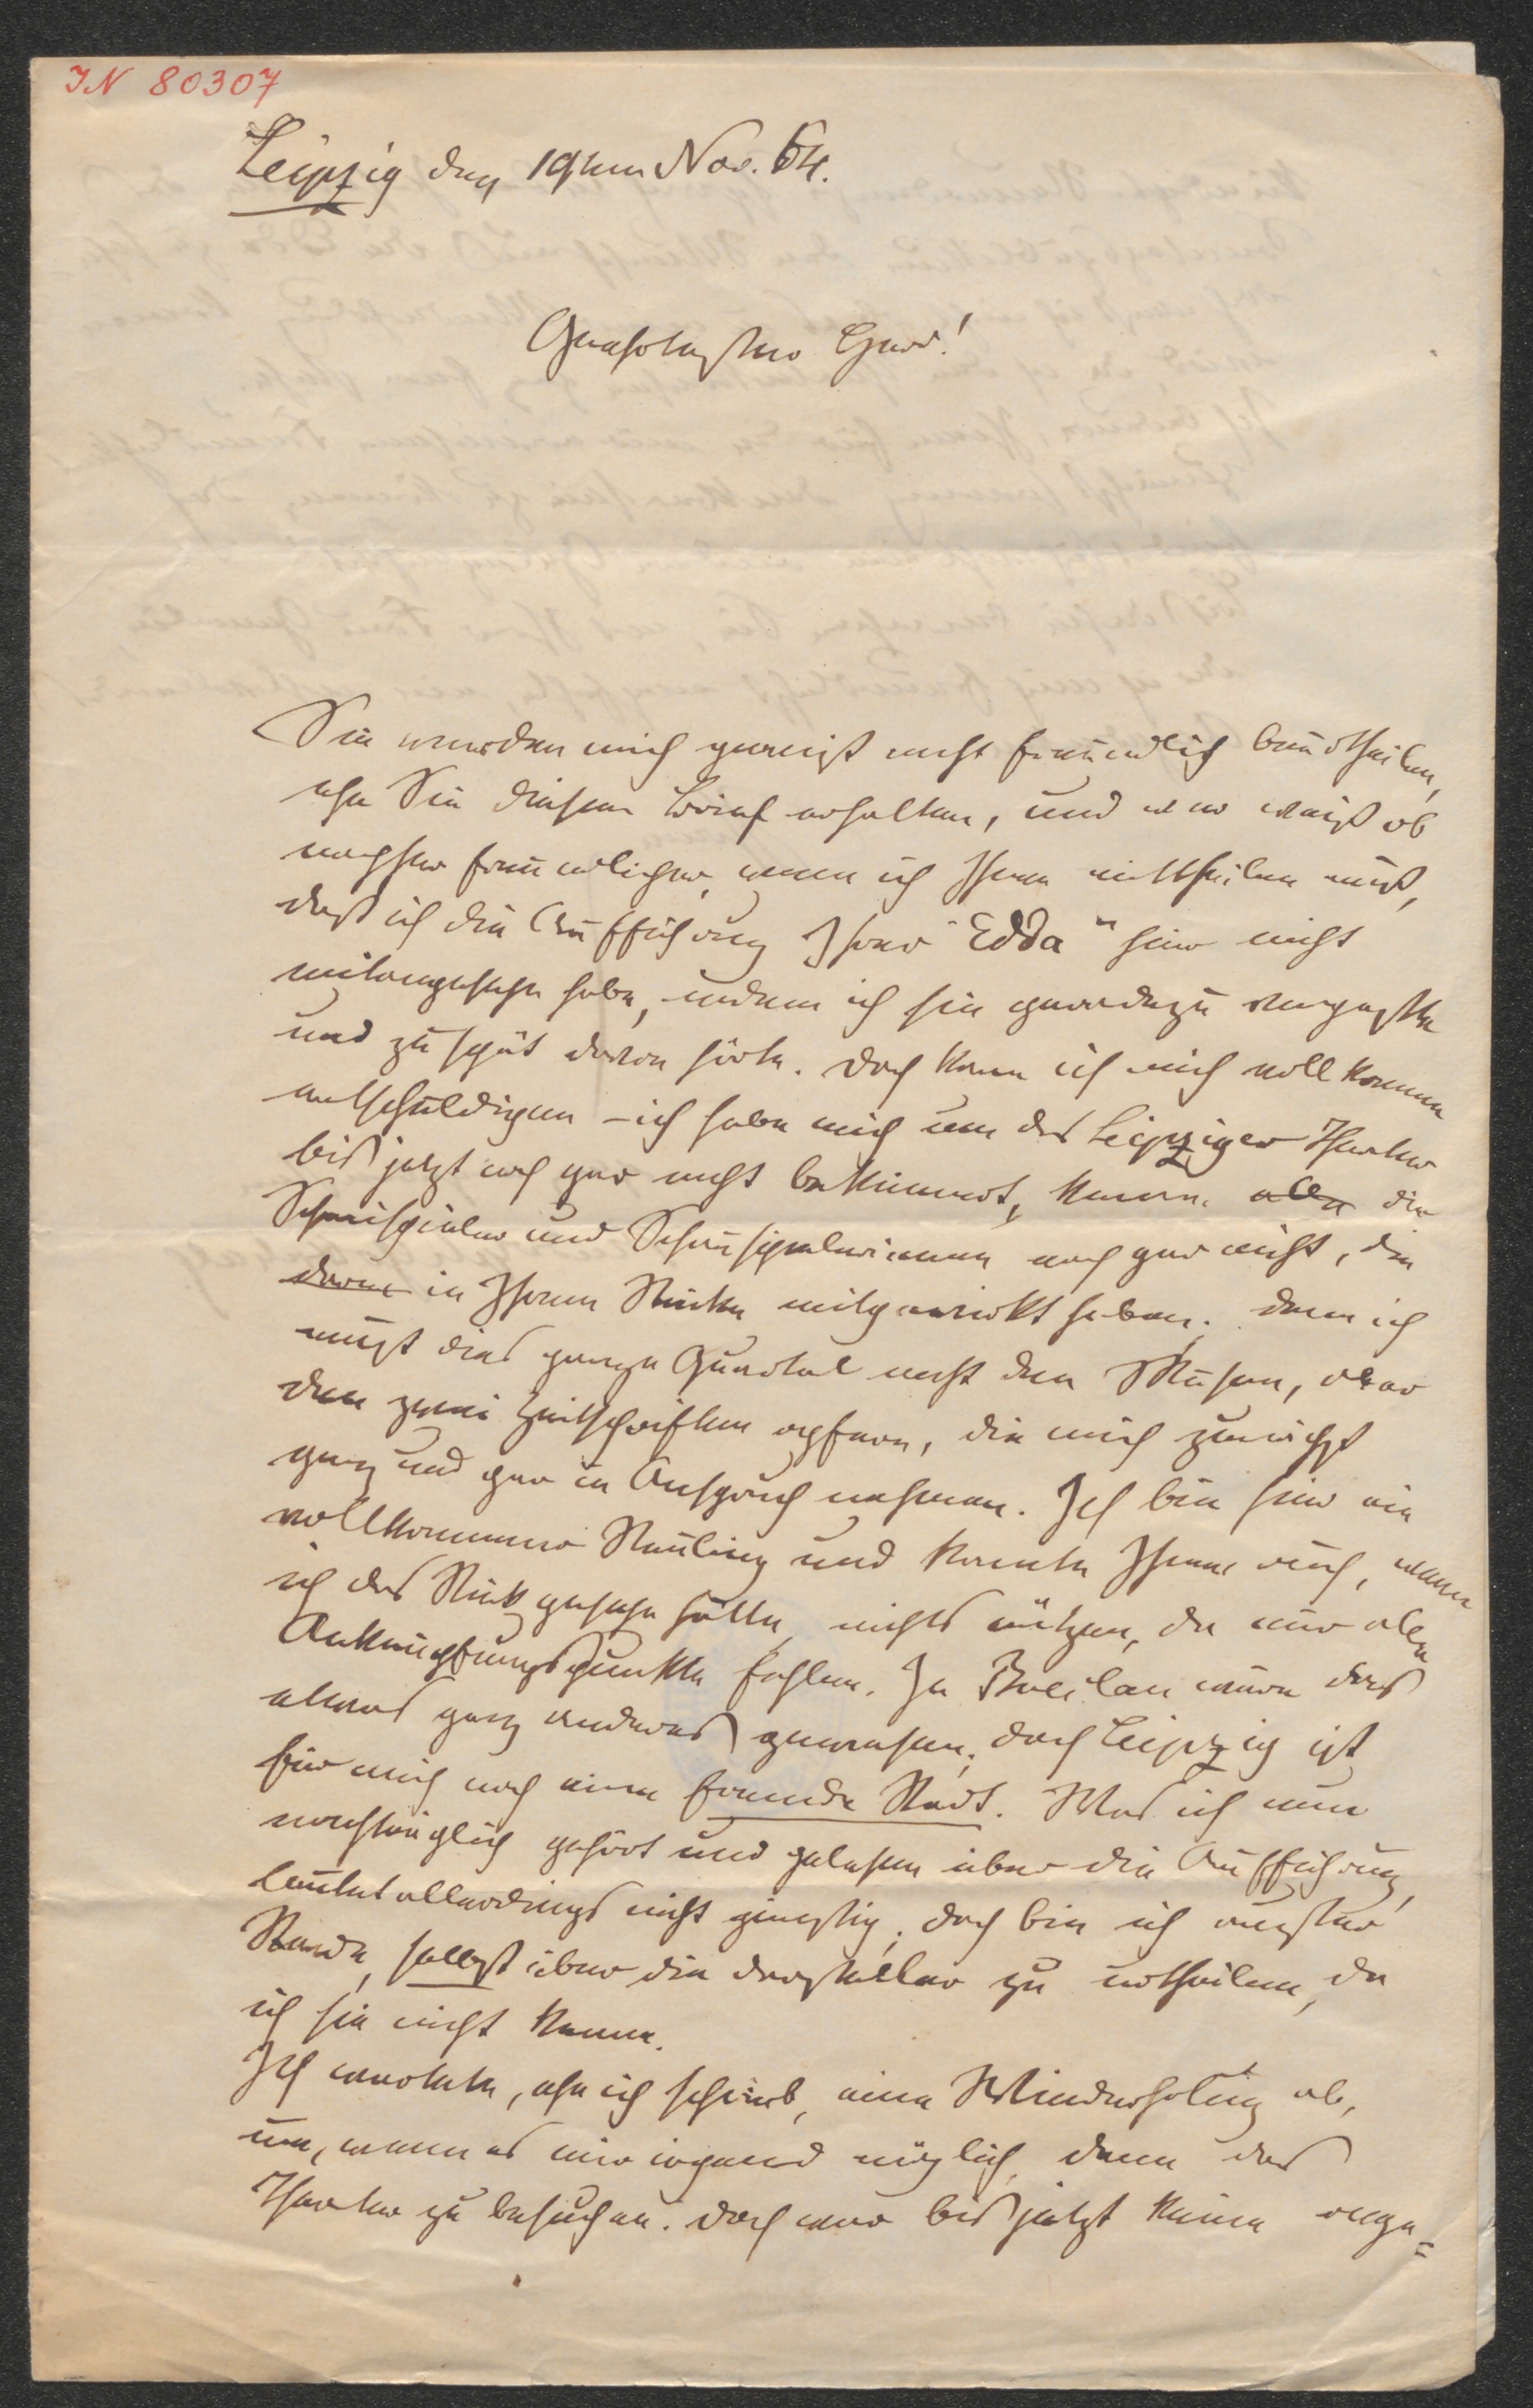 IN 80307
Leipzig den 19ten Nov. 64.
Geehrtester Herr!
Sie werden mich gewiß nicht freundlich beurtheilen,
ehe Sie diesen Brief erhalten, und wer weiß ob
nachher freundlicher, wenn ich Ihnen mittheilen muß,
daß ich die Aufführung Ihrer "Edda" hier nicht
mitangesehen habe, indem ich sie geradezu verpaßte
und zu spät davon hörte. Doch kann ich mich vollkommen
entschuldigen – ich habe mich um das Leipziger Theater
bis jetzt noch gar nicht bekümmert, kenne alle die
Schauspieler und Schauspielerinnen noch gar nicht, die
darin in Ihrem Stücke mitgewirkt haben; denn ich
mußt dies ganze Quartal nicht den Musen, aber
den zwei Zeitschriften opfern, die mich zunächst
ganz und gar in Anspruch nehmen. Ich bin hier ein
vollkommener Neuling und konnte Ihnen auch, wenn
ich das Stück gesehen hätte, nichts nützen, da mir alle
Anknüpfungspunkte fehlen. In Breslau wäre das
etwas ganz anderes gewesen; doch Leipzig ist
für mich noch eine fremde Stadt. Was ich nun
nachträglich gehört und gelesen über die Aufführung,
lautet allerdings nicht günstig; doch bin ich außer
Stande, selbst über die Darsteller zu urtheilen, da
ich sie nicht kenne.
Ich wartete, ehe ich schrieb, eine Wiederholung ab,
um, wenn es mir irgend möglich, dann das
Theater zu besuchen. Doch war bis jetzt keine ange=